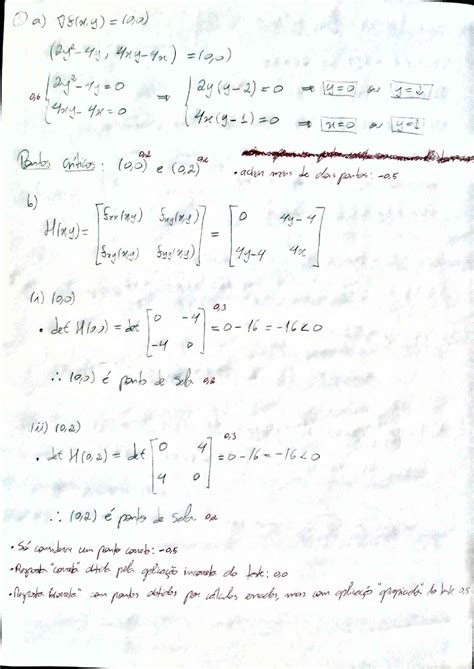 ① a) ∇f(x,y) = (0,0)
(2y²-4y, 4xy-4x) = (0,0)
0,6 { 2y²-4y=0 ⇒ { 2y(y-2)=0 ⇒ y=0 ou y=2
4xy-4x=0 4x(y-1)=0 ⇒ x=0 ou y=1
Pontos críticos: (0,0) 0,2 e (0,2) 0,2
• achar mais de dois pontos: -0,5
b)
H(x,y) = [ fxx(x,y) fxy(x,y) ] = [ 0 4y-4 ]
[ fxy(x,y) fyy(x,y) ] [ 4y-4 4x ]
(i) (0,0)
• det H(0,0) = det [ 0 -4 ] 0,3 = 0-16 = -16<0
[ -4 0 ]
∴ (0,0) é ponto de sela 0,2
(ii) (0,2)
• det H(0,2) = det [ 0 4 ] 0,3 = 0-16 = -16<0
[ 4 0 ]
∴ (0,2) é ponto de sela 0,2
• Só considera um ponto correto: -0,5
• Resposta "correta" obtida pela aplicação incorreta do teste: 0,0
• Resposta com pontos obtidos por cálculos errados, mas com aplicação "apropriada" do teste 0,5